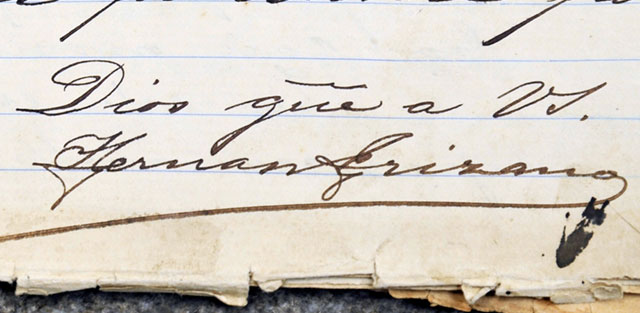 Dios gũe a VS.
Hernan Erizano